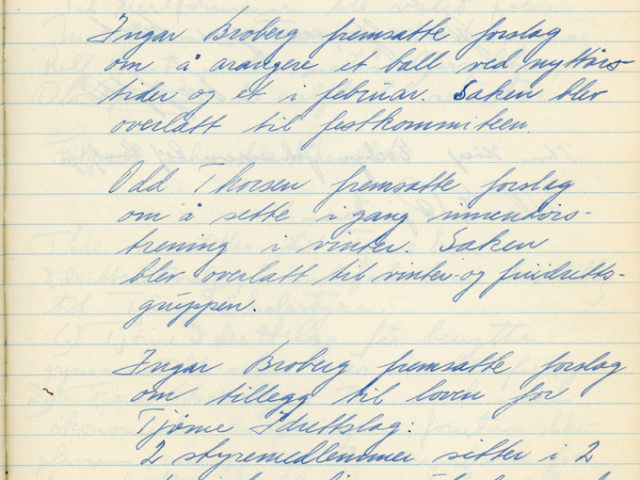 Ingar Broberg fremsatte forslag
om å arangere et ball ved nyttårs-
tider og et i februar. Saken blev
overlatt til festkommiteen.
Odd Thorsen fremsatte forslag
om å sette igang innendørs-
trening i vinter. Saken
blev overlatt til vinter- og friidretts-
gruppen.
Ingar Broberg fremsatte forslag
om tillegg til loven for
Tjøme Idrettslag:
2 styremedlemmer sitter i 2